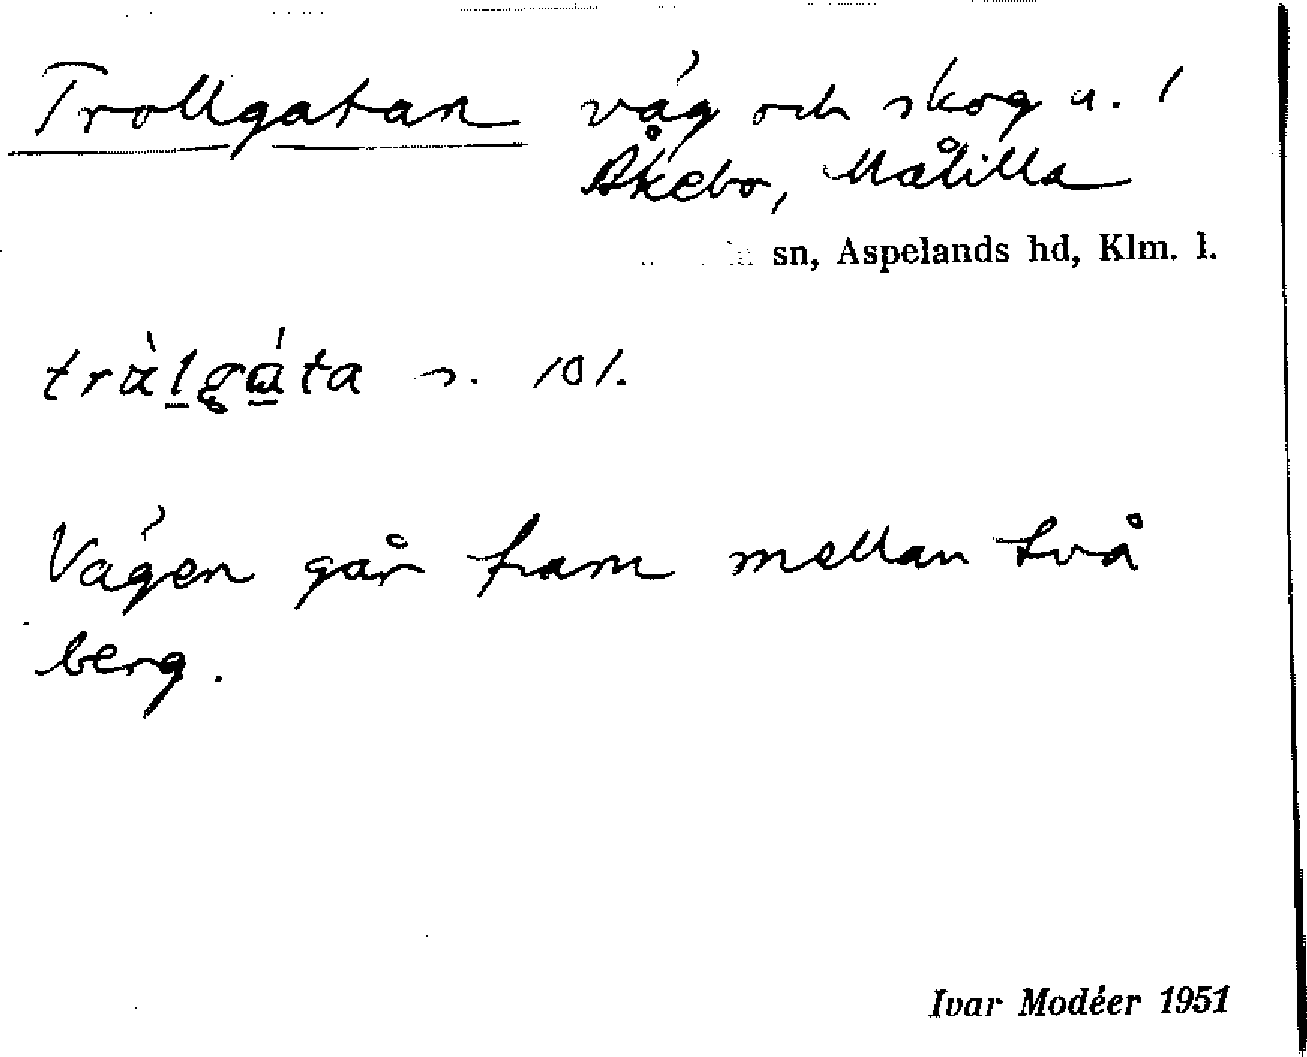 Trollgatan väg och skog u. 1
Åkebo, Målilla
sn, Aspelands hd, Klm. l.
s. 101.
Vägen går fram mellan två
berg.
Ivar Modéer 1951